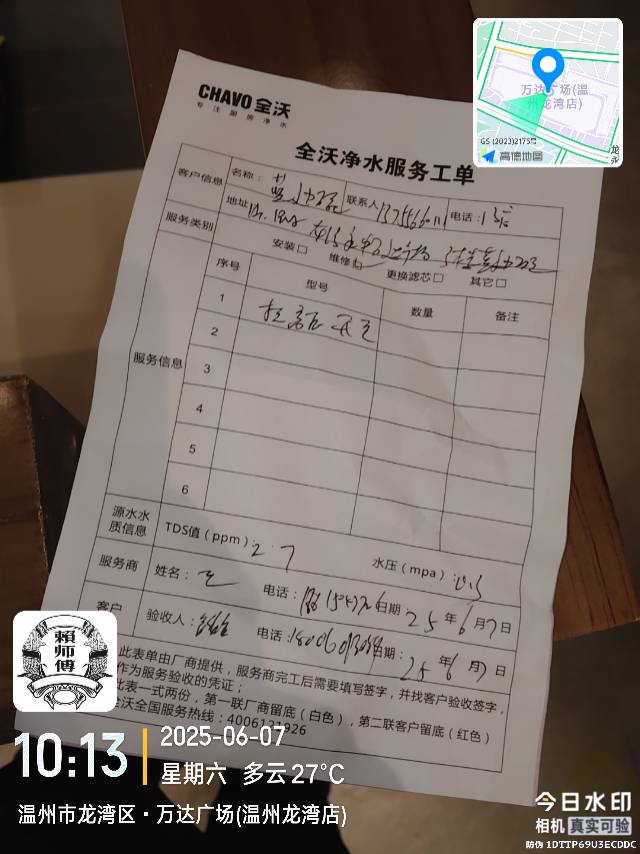 CHAVO全沃
专注厨房净水
全沃净水服务工单
客户信息 名称： 联系人 电话：
地址
服务类别 安装□ 维修□ 更换滤芯□ 其它□
服务信息 序号 型号 数量 备注
1
2
3
4
5
6
源水水质信息 TDS值（ppm）：2.7 水压（mpa）：0.3
服务商 姓名： 电话： 日期：25年6月7日
客户 验收人： 电话： 日期：25年6月7日
此表单由厂商提供，服务商完工后需要填写签字，并找客户验收签字，
作为服务验收的凭证；
此表一式两份，第一联厂商留底（白色），第二联客户留底（红色）
全沃全国服务热线：4006121926
万达广场(温州龙湾店)
GS (2023)2175号
高德地图
龙永
賴师傅
10:13
2025-06-07
星期六 多云 27°C
温州市龙湾区·万达广场(温州龙湾店)
今日水印
相机 真实可验
防伪 1DTTP69U3ECDDC